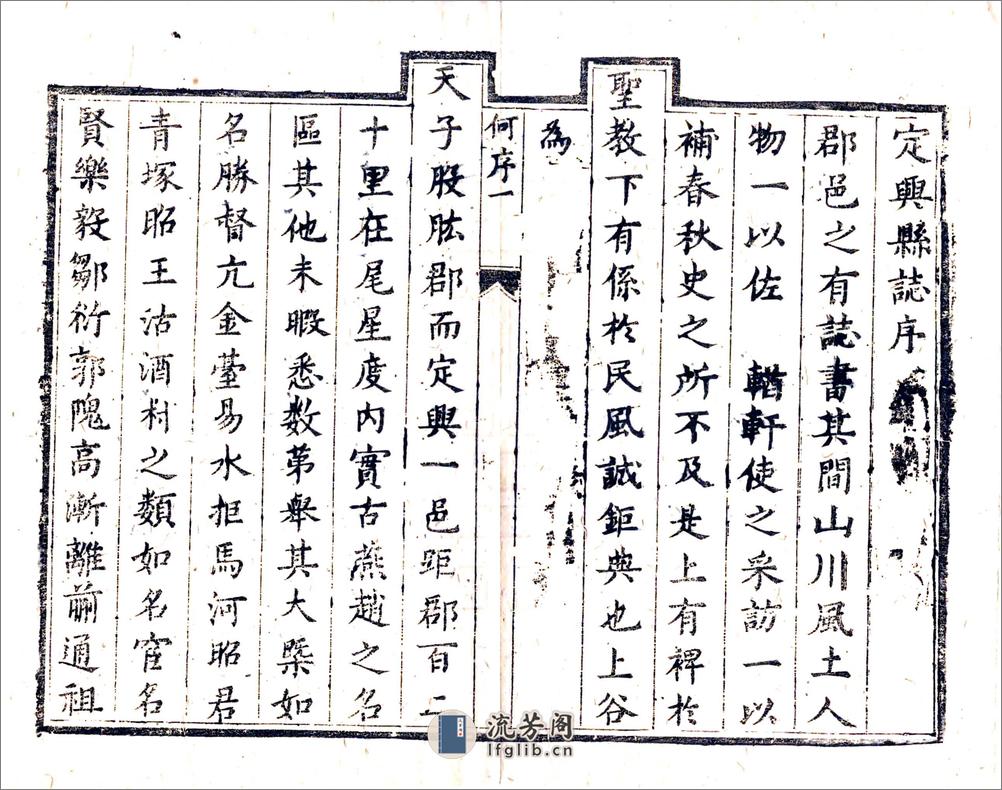 定興縣誌序
郡邑之有誌書其間山川風土人
物一以佐 輶軒使之采訪一以
補春秋史之所不及是上有裨於
聖教下有係於民風誠鉅典也上谷
為
何序一
天子股肱郡而定興一邑距郡百二
十里在尾星度内實古燕趙之名
區其他未暇悉数苐舉其大槩如
名勝督亢金臺易水拒馬河昭君
青塚昭王沽酒村之類如名宦名
賢樂毅鄒衍郭隗高漸離蒯通祖
流芳阁
lfglib.cn